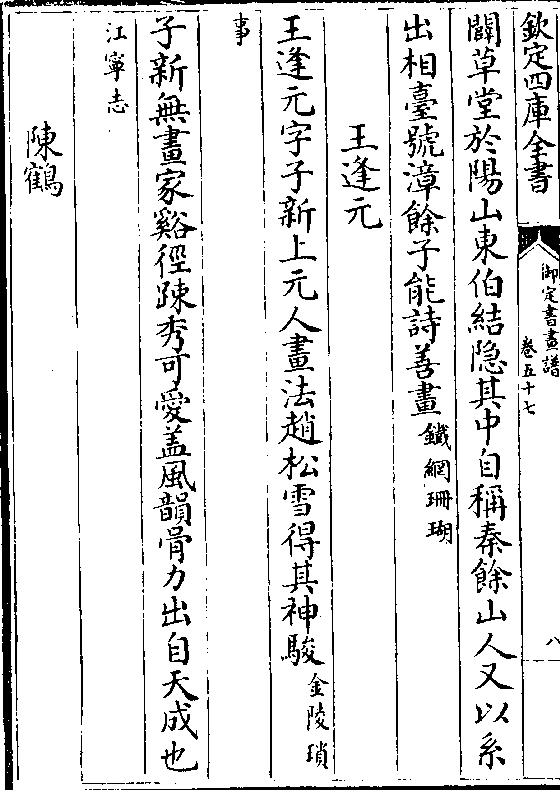 欽定四庫全書
御定書畫譜
卷五十七
八
闢草堂於陽山東伯結隐其中自稱秦餘山人又以系
出相臺號漳餘子能詩善畫鐵網珊瑚
王逢元
王逢元字子新上元人畫法趙松雪得其神駿金陵瑣
事
子新無畫家谿徑踈秀可愛盖風韻骨力出自天成也
江寧志
陳鶴